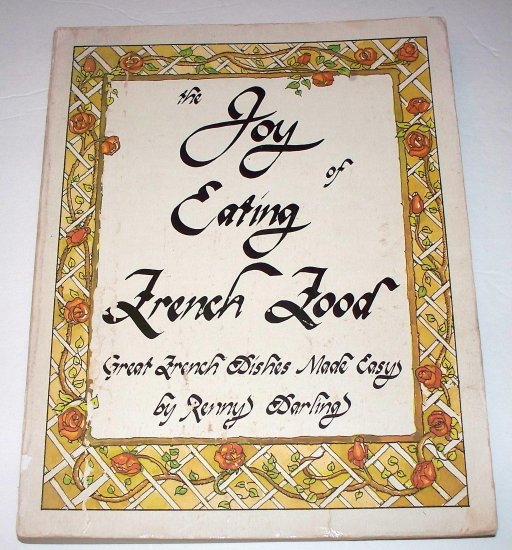 the Joy
of
Eating
French Food
Great French Dishes Made Easy
by Renny Darling